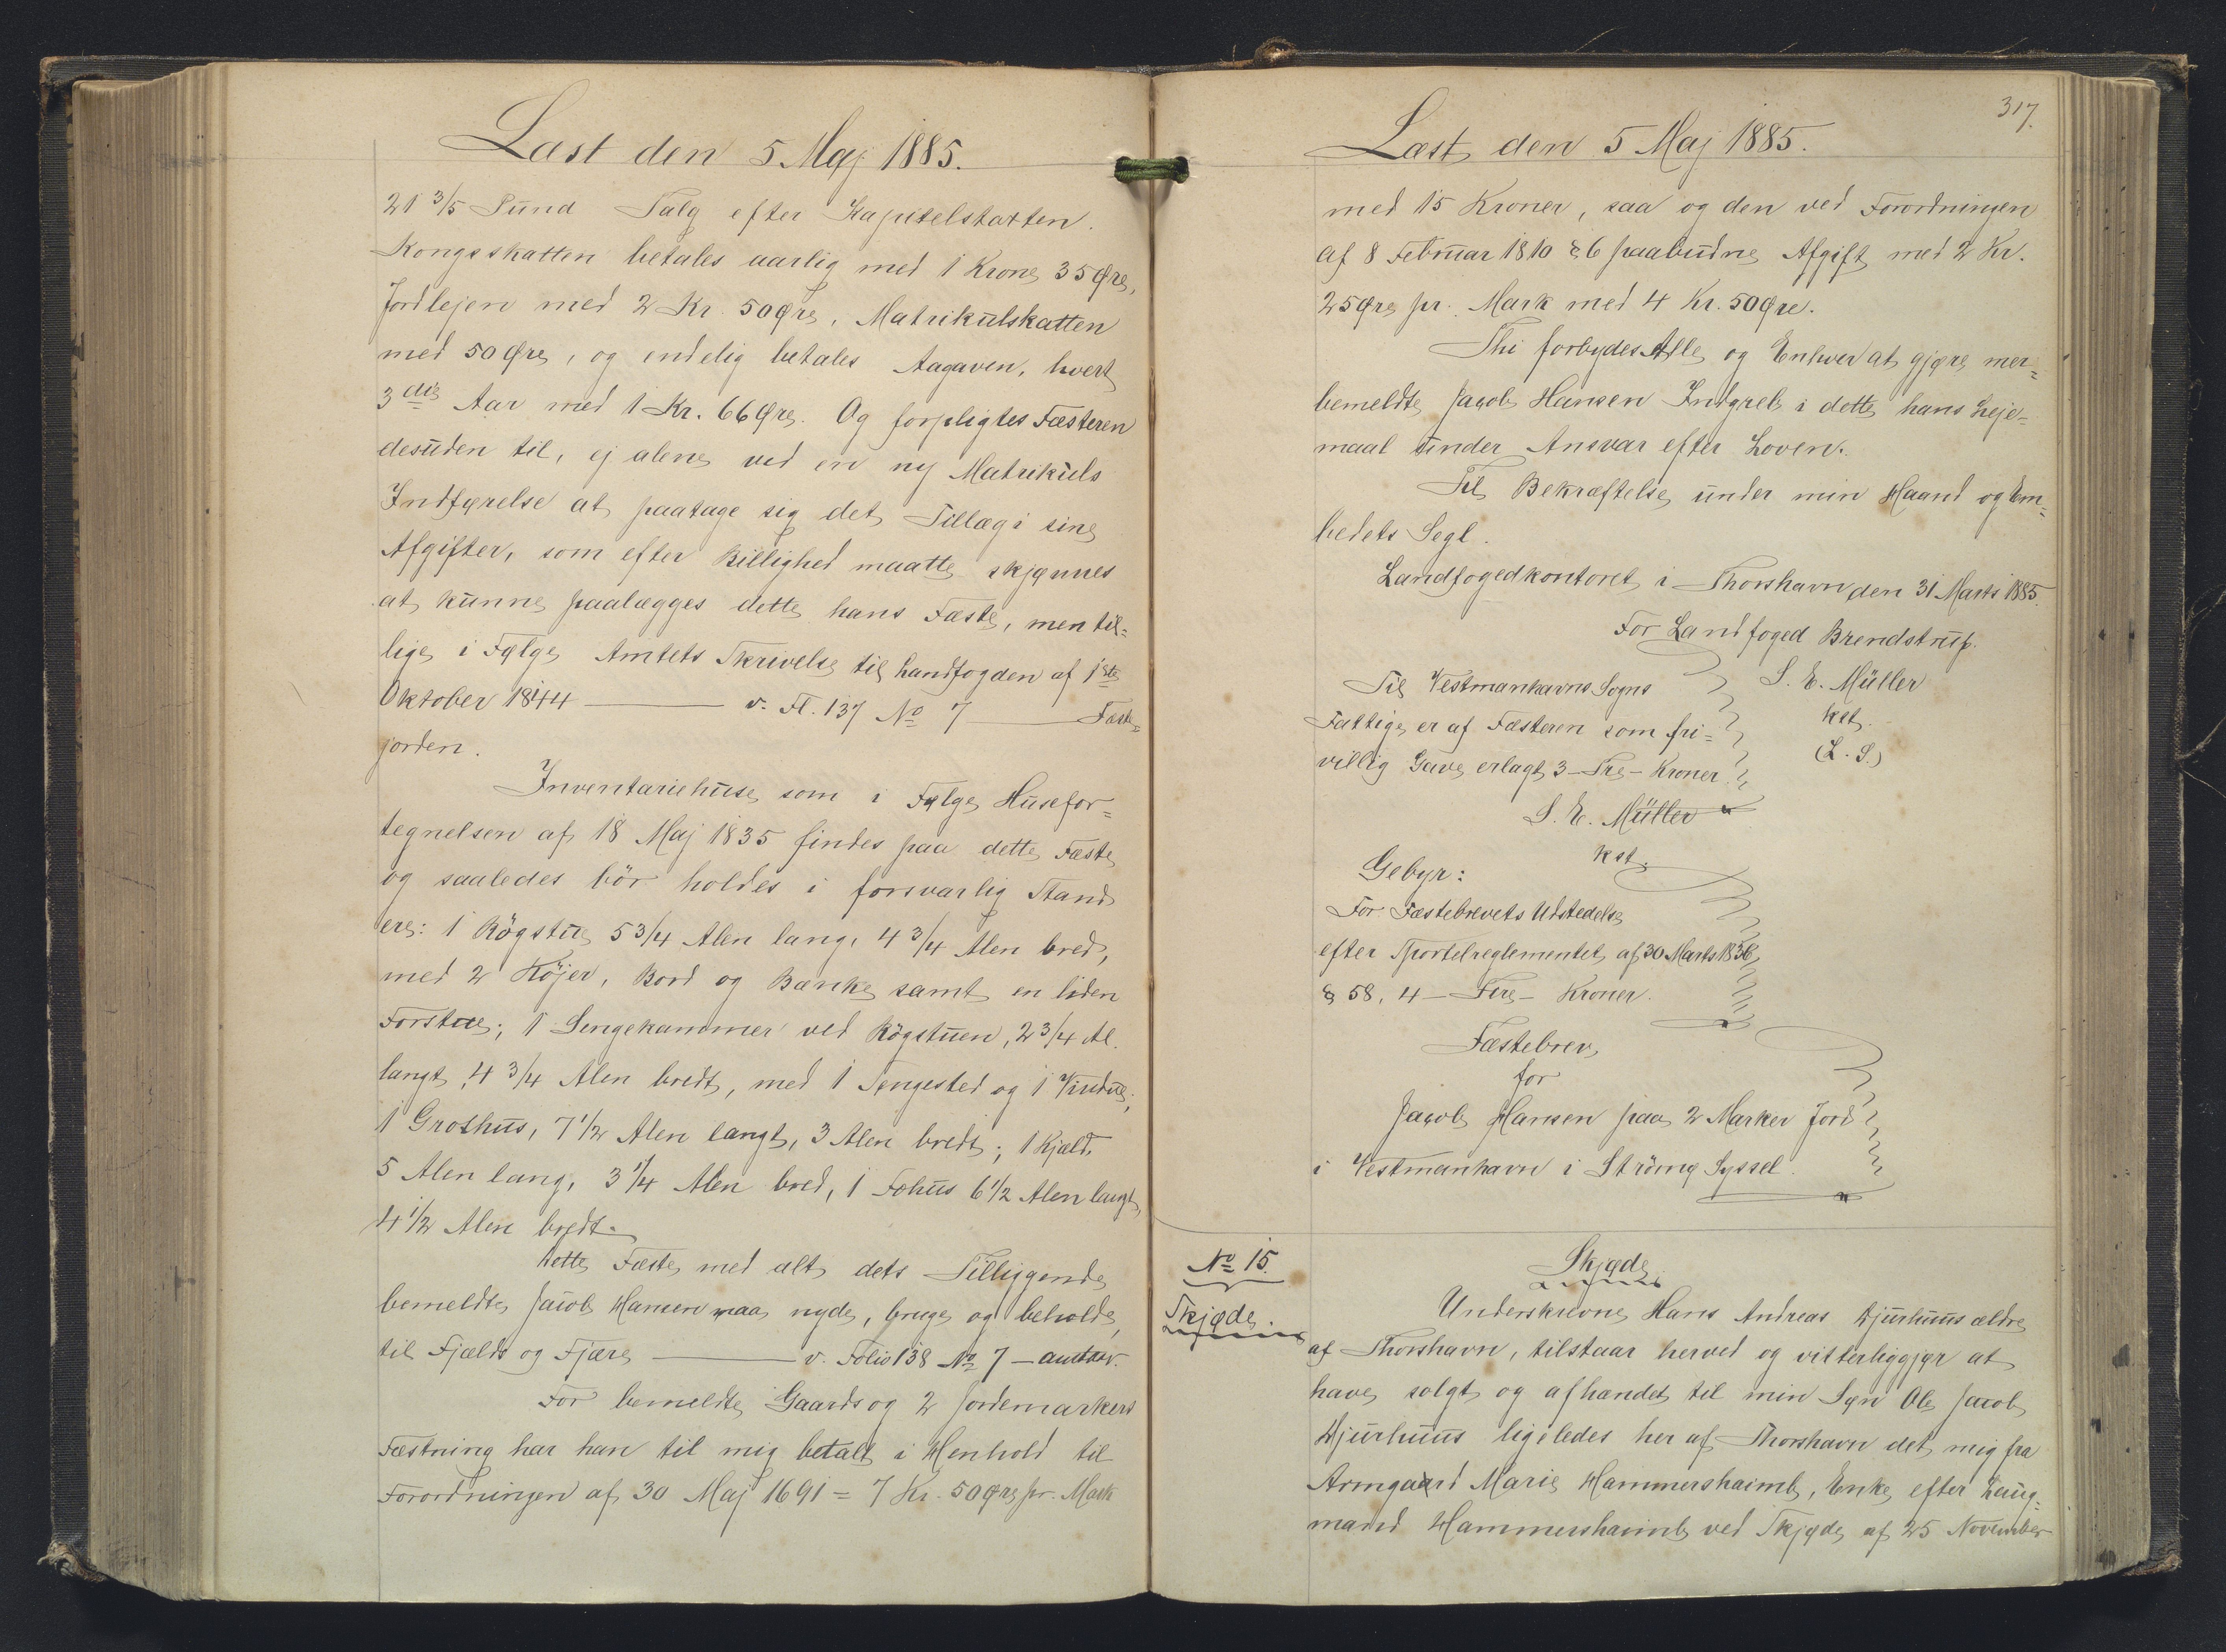 Læst den 5 Maj 1885.
21 3/5 Pund Talg efter Kapitelstaxten.
Kongsskatten betales aarlig med 1 Krone 35 Øre,
Jordlejen med 2 Kr. 50 Øre, Matrikulskatten
med 50 Øre, og endelig betales Aagaven, hvert
3die Aar med 1 Kr. 66 Øre. Og forpligtes Fæsteren
desuden til, ej alene ved en ny Matrikuls
Indførelse at paatage sig det Tillæg i sine
Afgifter, som efter Billighed maatte skjønnes
at kunne paalægges dette hans Fæste, men til=
lige i Følge Amtets Skrivelse til Landfogden af 1ste
Oktober 1844 ——— v. Fl. 137 No 7 ——— Fæste=
jorden.
Inventariehuse som i Følge Husefor=
tegnelsen af 18 Maj 1835 findes paa dette Fæste
og saaledes bör holdes i forsvarlig Stand
ere: 1 Rögstue 5 3/4 Alen lang, 4 3/4 Alen bred,
med 2 Köjer, Bord og Bænke samt en liden
Forstue; 1 Sengekammer ved Rögstuen, 2 3/4 Al.
langt, 4 3/4 Alen bredt, med 1 Sengested og 1 Vindue;
1 Grothus, 7 1/2 Alen langt, 3 Alen bredt; 1 Kjæld.
5 Alen lang, 3 1/4 Alen bred, 1 Fæhus 6 1/2 Alen langt,
4 1/2 Alen bredt.
Dette Fæste med alt dets Tilliggende
bemeldte Jacob Hansen maa nyde, bruge og beholde,
til Fjælds og Fjære ——— v. Folio 138 No 7 —
For bemeldte Gaards og 2 Jordemarkers
Fæstning har han til mig betalt i Henhold til
Forordningen af 30 Maj 1691 = 7 Kr. 50 Øre pr. Mark
317.
Læst den 5 Maj 1885.
med 15 Kroner, saa og den ved Forordningen
af 8 Februar 1810 § 6 paabudne Afgift med 2 Kr.
25 Øre pr. Mark med 4 Kr. 50 Øre.
Thi forbydes Alle og Enhver at gjøre mer=
bemeldte Jacob Hansen Indgreb i dette hans Leje=
maal under Ansvar efter Loven.
Til Bekræftelse under min Haand og Em=
bedets Segl.
Landfogedkontoret i Thorshavn den 31 Marts 1885.
For Landfoged Brendstrup.
S. E. Müller
kst.
(L. S.)
Til Vestmanhavns Sogns
Fattige er af Fæsteren som fri=
villig Gave erlagt 3 – Tre – Kroner.
S. E. Müller
kst.
Gebyr:
For Fæstebrevets Udstedelse
efter Sportelreglementet af 30 Marts 1836
§ 58, 4 – Fire – Kroner.
Fæstebrev
for
Jacob Hansen paa 2 Marker Jord
i Vestmanhavn i Strömø Syssel.
No 15.
Skjøde.
Skjøde
Underskrevne Hans Andreas Djurhuus ældre
af Thorshavn, tilstaar herved og vitterliggjør at
have solgt og afhændet til min Søn Ole Jacob
Djurhuus ligeledes her af Thorshavn det mig fra
Armgaard Marie Hammershaimb, Enke efter Laug=
mand Hammershaimb ved Skjøde af 25 November